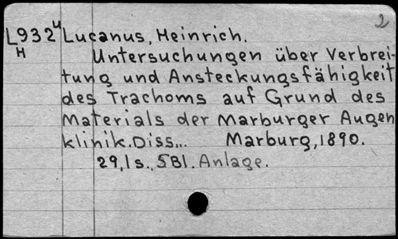 2
L932 u Lucanus, Heinrich.
H
Untersuchungen über Verbrei-
tung und Ansteckungsfähigkeit
des Trachoms auf Grund des
Materials der Marburger Augen
klinik. Diss... Marburg, 1890.
29,1 s., 5Bl. Anlage.